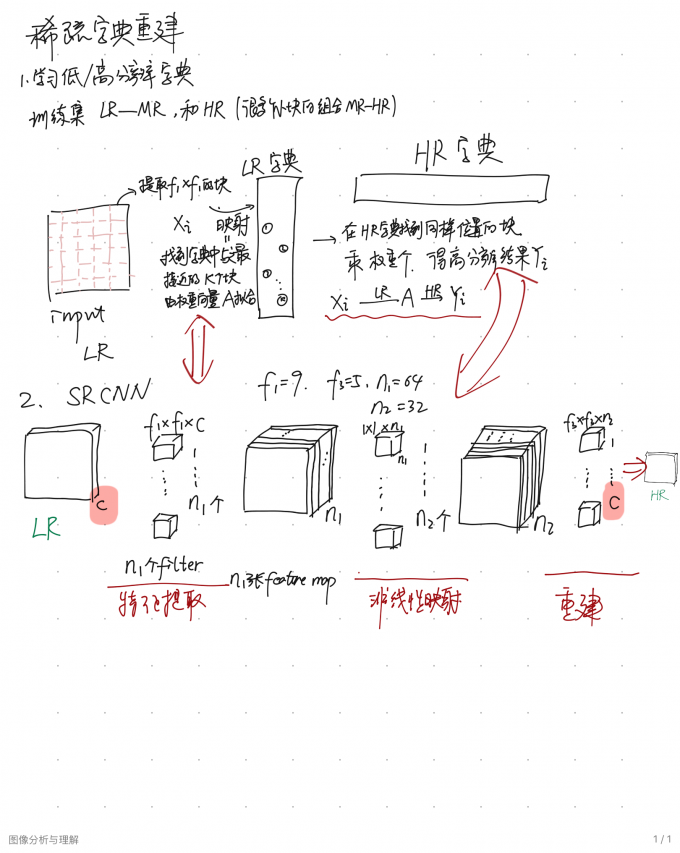 稀疏字典重建
1.学习低/高分辨字典
训练集 LR—MR,和HR (很多N块的组合MR-HR)
LR字典
HR字典
提取f₁×f₁的块
Xi 映射
找到字典中与最
接近的K个块
由权重向量A拟合
① ② ① ⑯
→ 在HR字典找到同样位置的块
乘权重个,得高分辨结果Yi
Xi —LR— A —HR→ Yi
input
LR
2. SRCNN
f₁=9. f₃=5, n₁=64
n₂=32
f₁×f₁×C
1×1×n₁
n₁
f₃×f₃×n₂
C
n₁个
n₁
n₂个
n₂
C
LR
HR
n₁个filter
n₁张feature map
特征提取
非线性映射
重建
图像分析与理解
1 / 1